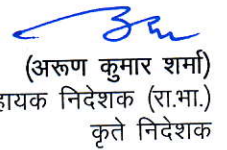 (अरूण कुमार शर्मा)
हायक निदेशक (रा.भा.)
कृते निदेशक